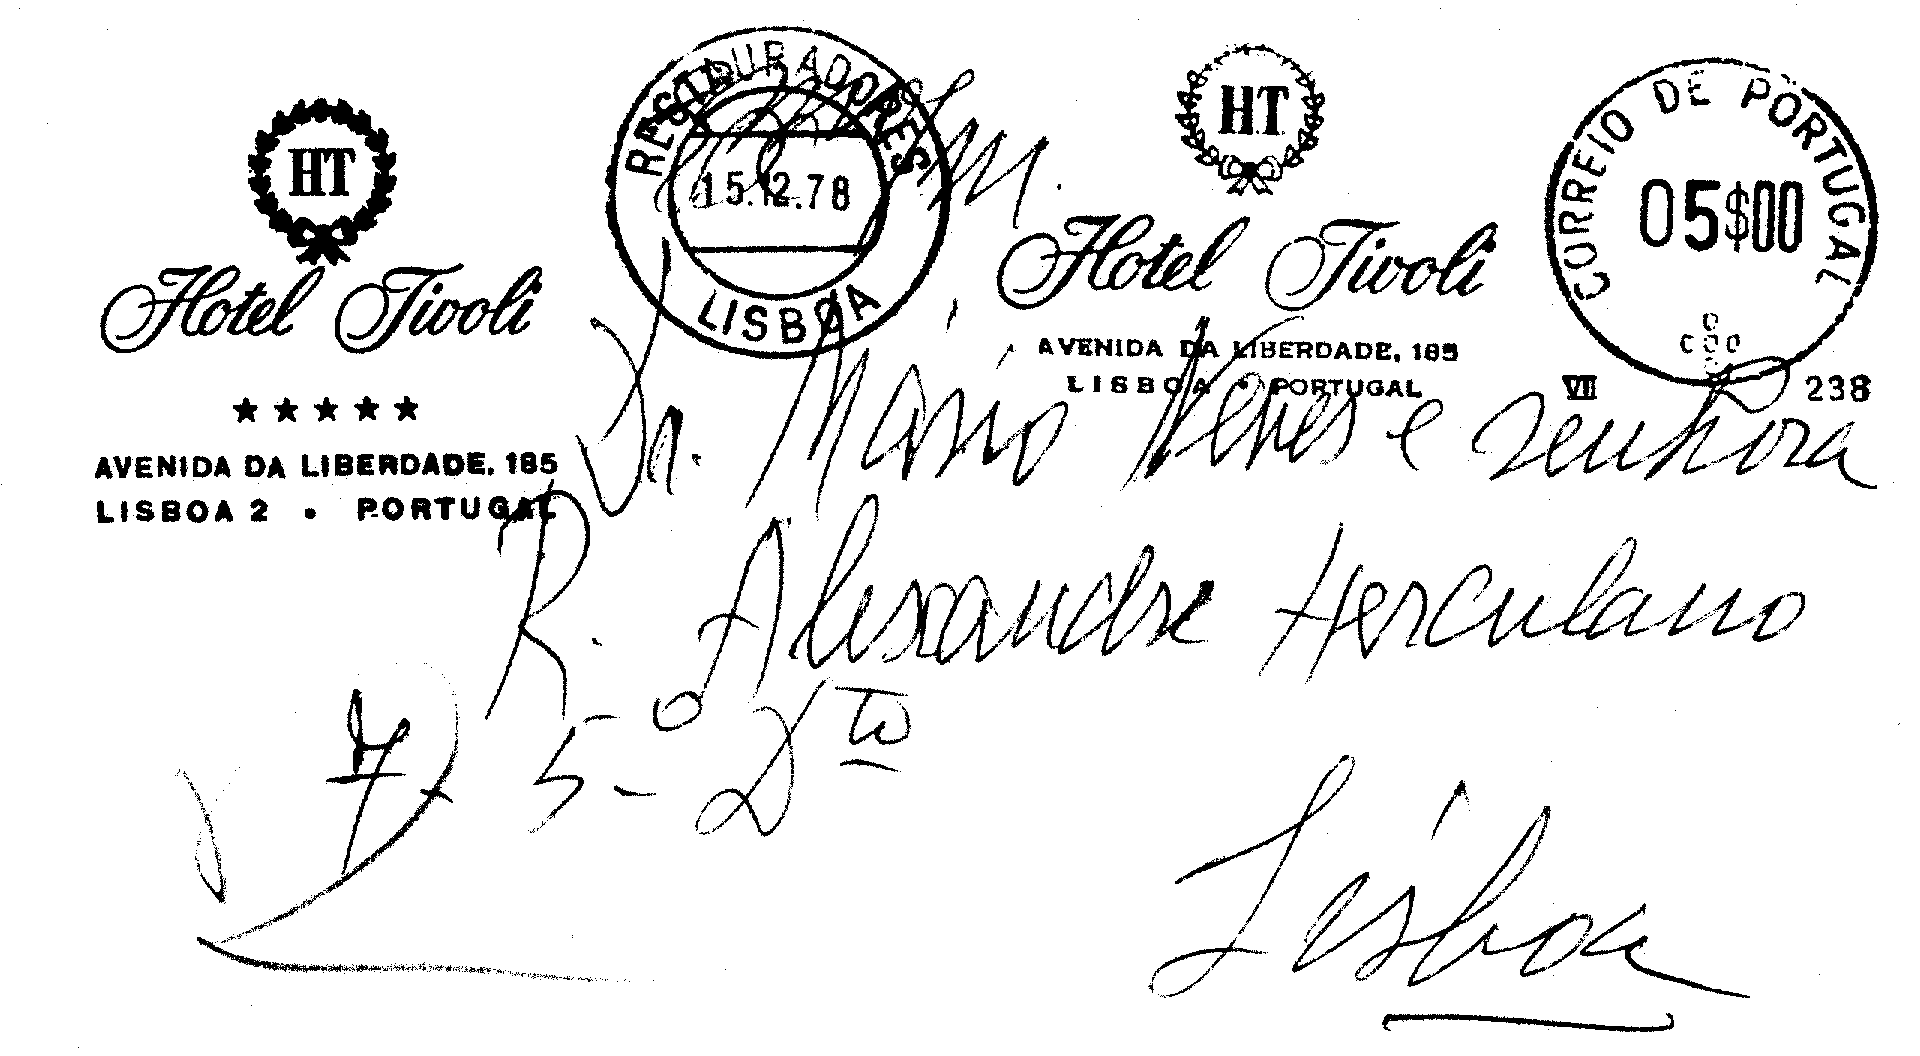 HT
Hotel Tivoli
★★★★★
AVENIDA DA LIBERDADE, 185
LISBOA 2 • PORTUGAL
RESTAURADORES
15.12.78
LISBOA
HT
Hotel Tivoli
AVENIDA DA LIBERDADE, 185
LISBOA • PORTUGAL
CORREIO DE PORTUGAL
05$00
VII 238
Dr. Mário Neves e Senhora
R. Alexandre Herculano
5-º Dto
Lisboa